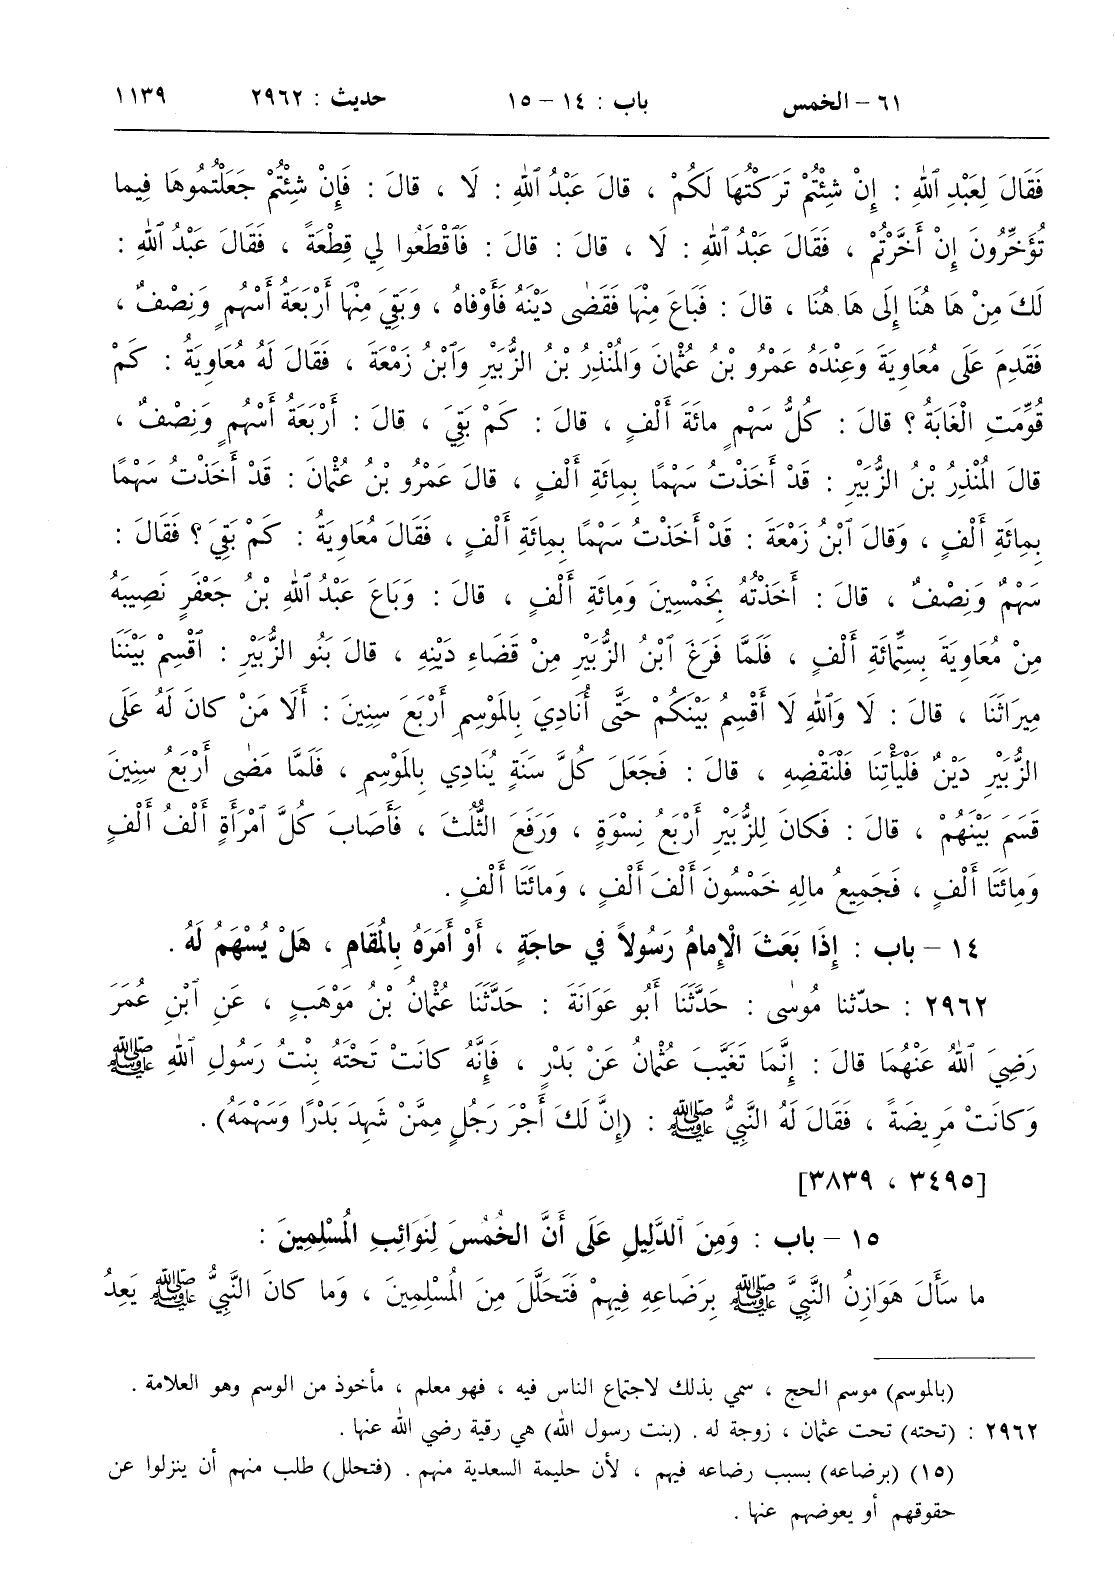 ٦١ - الخمس باب : ١٤ - ١٥ حديث : ٢٩٦٢ ١١٣٩
فَقَالَ لِعَبْدِ ٱللهِ : إِنْ شِئْتُمْ تَرَكْتُهَا لَكُمْ ، قالَ عَبْدُ ٱللهِ : لَا ، قالَ : فَإِنْ شِئْتُمْ جَعَلْتُمُوهَا فِيما
تُؤَخِّرُونَ إِنْ أَخَّرْتُمْ ، فَقَالَ عَبْدُ ٱللهِ : لَا ، قالَ : قالَ : فَٱقْطَعُوا لِي قِطْعَةً ، فَقَالَ عَبْدُ ٱللهِ :
لَكَ مِنْ هَا هُنَا إِلَى هَا هُنَا ، قالَ : فَبَاعَ مِنْهَا فَقَضٰى دَيْنَهُ فَأَوْفاهُ ، وَبَقِيَ مِنْهَا أَرْبَعَةُ أَسْهُمٍ وَنِصْفٌ ،
فَقَدِمَ عَلَى مُعَاوِيَةَ وَعِنْدَهُ عَمْرُو بْنُ عُثْمانَ وَالْمُنْذِرُ بْنُ الزُّبَيْرِ وَٱبْنُ زَمْعَةَ ، فَقَالَ لَهُ مُعَاوِيَةُ : كَمْ
قُوِّمَتِ الْغَابَةُ ؟ قالَ : كُلُّ سَهْمٍ مائَةَ أَلْفٍ ، قالَ : كَمْ بَقِيَ ، قالَ : أَرْبَعَةُ أَسْهُمٍ وَنِصْفٌ ،
قالَ الْمُنْذِرُ بْنُ الزُّبَيْرِ : قَدْ أَخَذْتُ سَهْمًا بِمائَةِ أَلْفٍ ، قالَ عَمْرُو بْنُ عُثْمانَ : قَدْ أَخَذْتُ سَهْمًا
بِمائَةِ أَلْفٍ ، وَقالَ ٱبْنُ زَمْعَةَ : قَدْ أَخَذْتُ سَهْمًا بِمائَةِ أَلْفٍ ، فَقَالَ مُعَاوِيَةُ : كَمْ بَقِيَ ؟ فَقَالَ :
سَهْمٌ وَنِصْفٌ ، قالَ : أَخَذْتُهُ بِخَمْسِينَ وَمِائَةِ أَلْفٍ ، قالَ : وَبَاعَ عَبْدُ ٱللهِ بْنُ جَعْفَرٍ نَصِيبَهُ
مِنْ مُعَاوِيَةَ بِسِتِّمِائَةِ أَلْفٍ ، فَلَمَّا فَرَغَ ٱبْنُ الزُّبَيْرِ مِنْ قَضَاءِ دَيْنِهِ ، قالَ بَنُو الزُّبَيْرِ : ٱقْسِمْ بَيْنَنَا
مِيرَاثَنَا ، قالَ : لَا وَٱللهِ لَا أَقْسِمُ بَيْنَكُمْ حَتَّى أُنَادِيَ بِالْمَوْسِمِ أَرْبَعَ سِنِينَ : أَلَا مَنْ كانَ لَهُ عَلَى
الزُّبَيْرِ دَيْنٌ فَلْيَأْتِنَا فَلْنَقْضِهِ ، قالَ : فَجَعَلَ كُلَّ سَنَةٍ يُنَادِي بِالْمَوْسِمِ ، فَلَمَّا مَضٰى أَرْبَعُ سِنِينَ
قَسَمَ بَيْنَهُمْ ، قالَ : فَكانَ لِلزُّبَيْرِ أَرْبَعُ نِسْوَةٍ ، وَرَفَعَ الثُّلُثَ ، فَأَصَابَ كُلَّ ٱمْرَأَةٍ أَلْفُ أَلْفٍ
وَمِائَتَا أَلْفٍ ، فَجَمِيعُ مالِهِ خَمْسُونَ أَلْفَ أَلْفٍ ، وَمائَتَا أَلْفٍ .
١٤ - باب : إِذَا بَعَثَ الْإِمامُ رَسُولاً في حاجَةٍ ، أَوْ أَمَرَهُ بِالْمُقَامِ ، هَلْ يُسْهَمُ لَهُ .
٢٩٦٢ : حدّثنا مُوسٰى : حَدَّثَنَا أَبُو عَوَانَةَ : حَدَّثَنَا عُثْمانُ بْنُ مَوْهَبٍ ، عَنِ ٱبْنِ عُمَرَ
رَضِيَ ٱللهُ عَنْهُمَا قالَ : إِنَّمَا تَغَيَّبَ عُثْمانُ عَنْ بَدْرٍ ، فَإِنَّهُ كانَتْ تَحْتَهُ بِنْتُ رَسُولِ ٱللهِ ﷺ
وَكانَتْ مَرِيضَةً ، فَقَالَ لَهُ النَّبِيُّ ﷺ : (إِنَّ لَكَ أَجْرَ رَجُلٍ مِمَّنْ شَهِدَ بَدْرًا وَسَهْمَهُ) .
[٣٤٩٥ ، ٣٨٣٩]
١٥ - باب : وَمِنَ ٱلدَّلِيلِ عَلَى أَنَّ الخُمُسَ لِنَوَائِبِ الْمُسْلِمِينَ :
ما سَأَلَ هَوَازِنُ النَّبِيَّ ﷺ بِرَضَاعِهِ فِيهِمْ فَتَحَلَّلَ مِنَ الْمُسْلِمِينَ ، وَما كانَ النَّبِيُّ ﷺ يَعِدُ
(بالموسم) موسم الحج ، سمي بذلك لاجتماع الناس فيه ، فهو معلم ، مأخوذ من الوسم وهو العلامة .
٢٩٦٢ : (تحته) تحت عثمان ، زوجة له . (بنت رسول الله) هي رقية رضي الله عنها .
(١٥) (برضاعه) بسبب رضاعه فيهم ، لأن حليمة السعدية منهم . (فتحلل) طلب منهم أن ينزلوا عن
حقوقهم أو يعوضهم عنها .